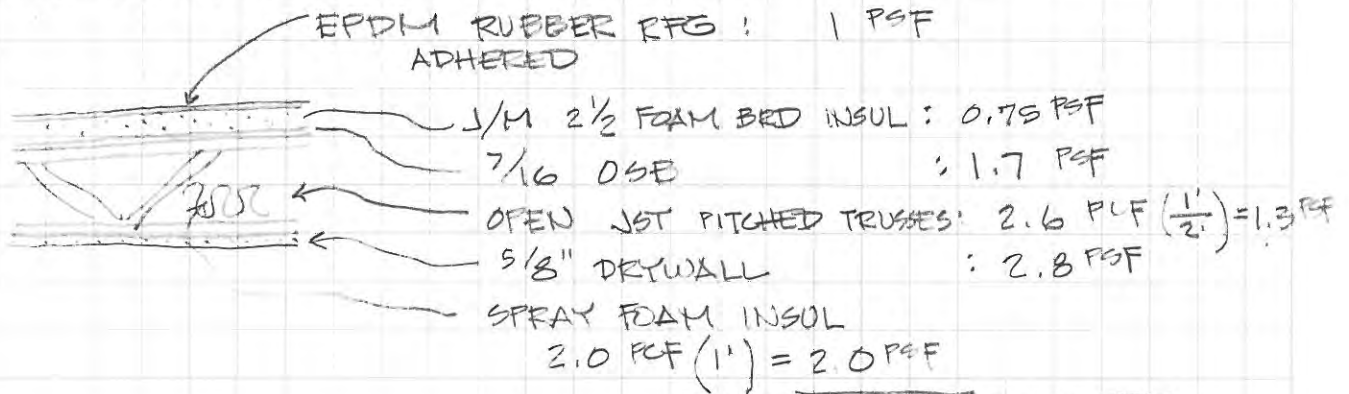 EPDM RUBBER RFG : 1 PSF
ADHERED
J/M 2 1/2 FOAM BRD INSUL : 0.75 PSF
7/16 OSB : 1.7 PSF
OPEN JST PITCHED TRUSSES : 2.6 PLF (1'/2') = 1.3 PSF
5/8" DRYWALL : 2.8 PSF
SPRAY FOAM INSUL
2.0 PCF (1') = 2.0 PSF